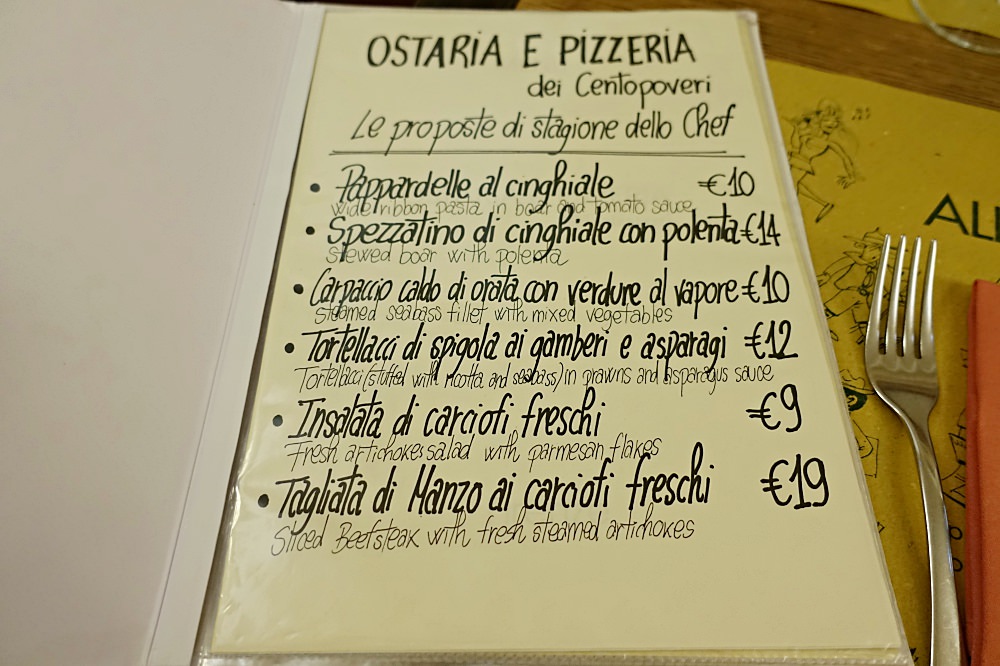 OSTARIA E PIZZERIA
dei Centopoveri
Le proposte di stagione dello Chef
• Pappardelle al cinghiale €10
wide ribbon pasta in boar and tomato sauce
• Spezzatino di cinghiale con polenta €14
stewed boar with polenta
• Carpaccio caldo di orata con verdure al vapore €10
Steamed seabass fillet with mixed vegetables
• Tortellacci di spigola ai gamberi e asparagi €12
Tortellacci (stuffed with ricotta and seabass) in prawns and asparagus sauce
• Insalata di carciofi freschi €9
Fresh artichokes salad with parmesan flakes
• Tagliata di Manzo ai carciofi freschi €19
Sliced Beefsteak with fresh steamed artichokes